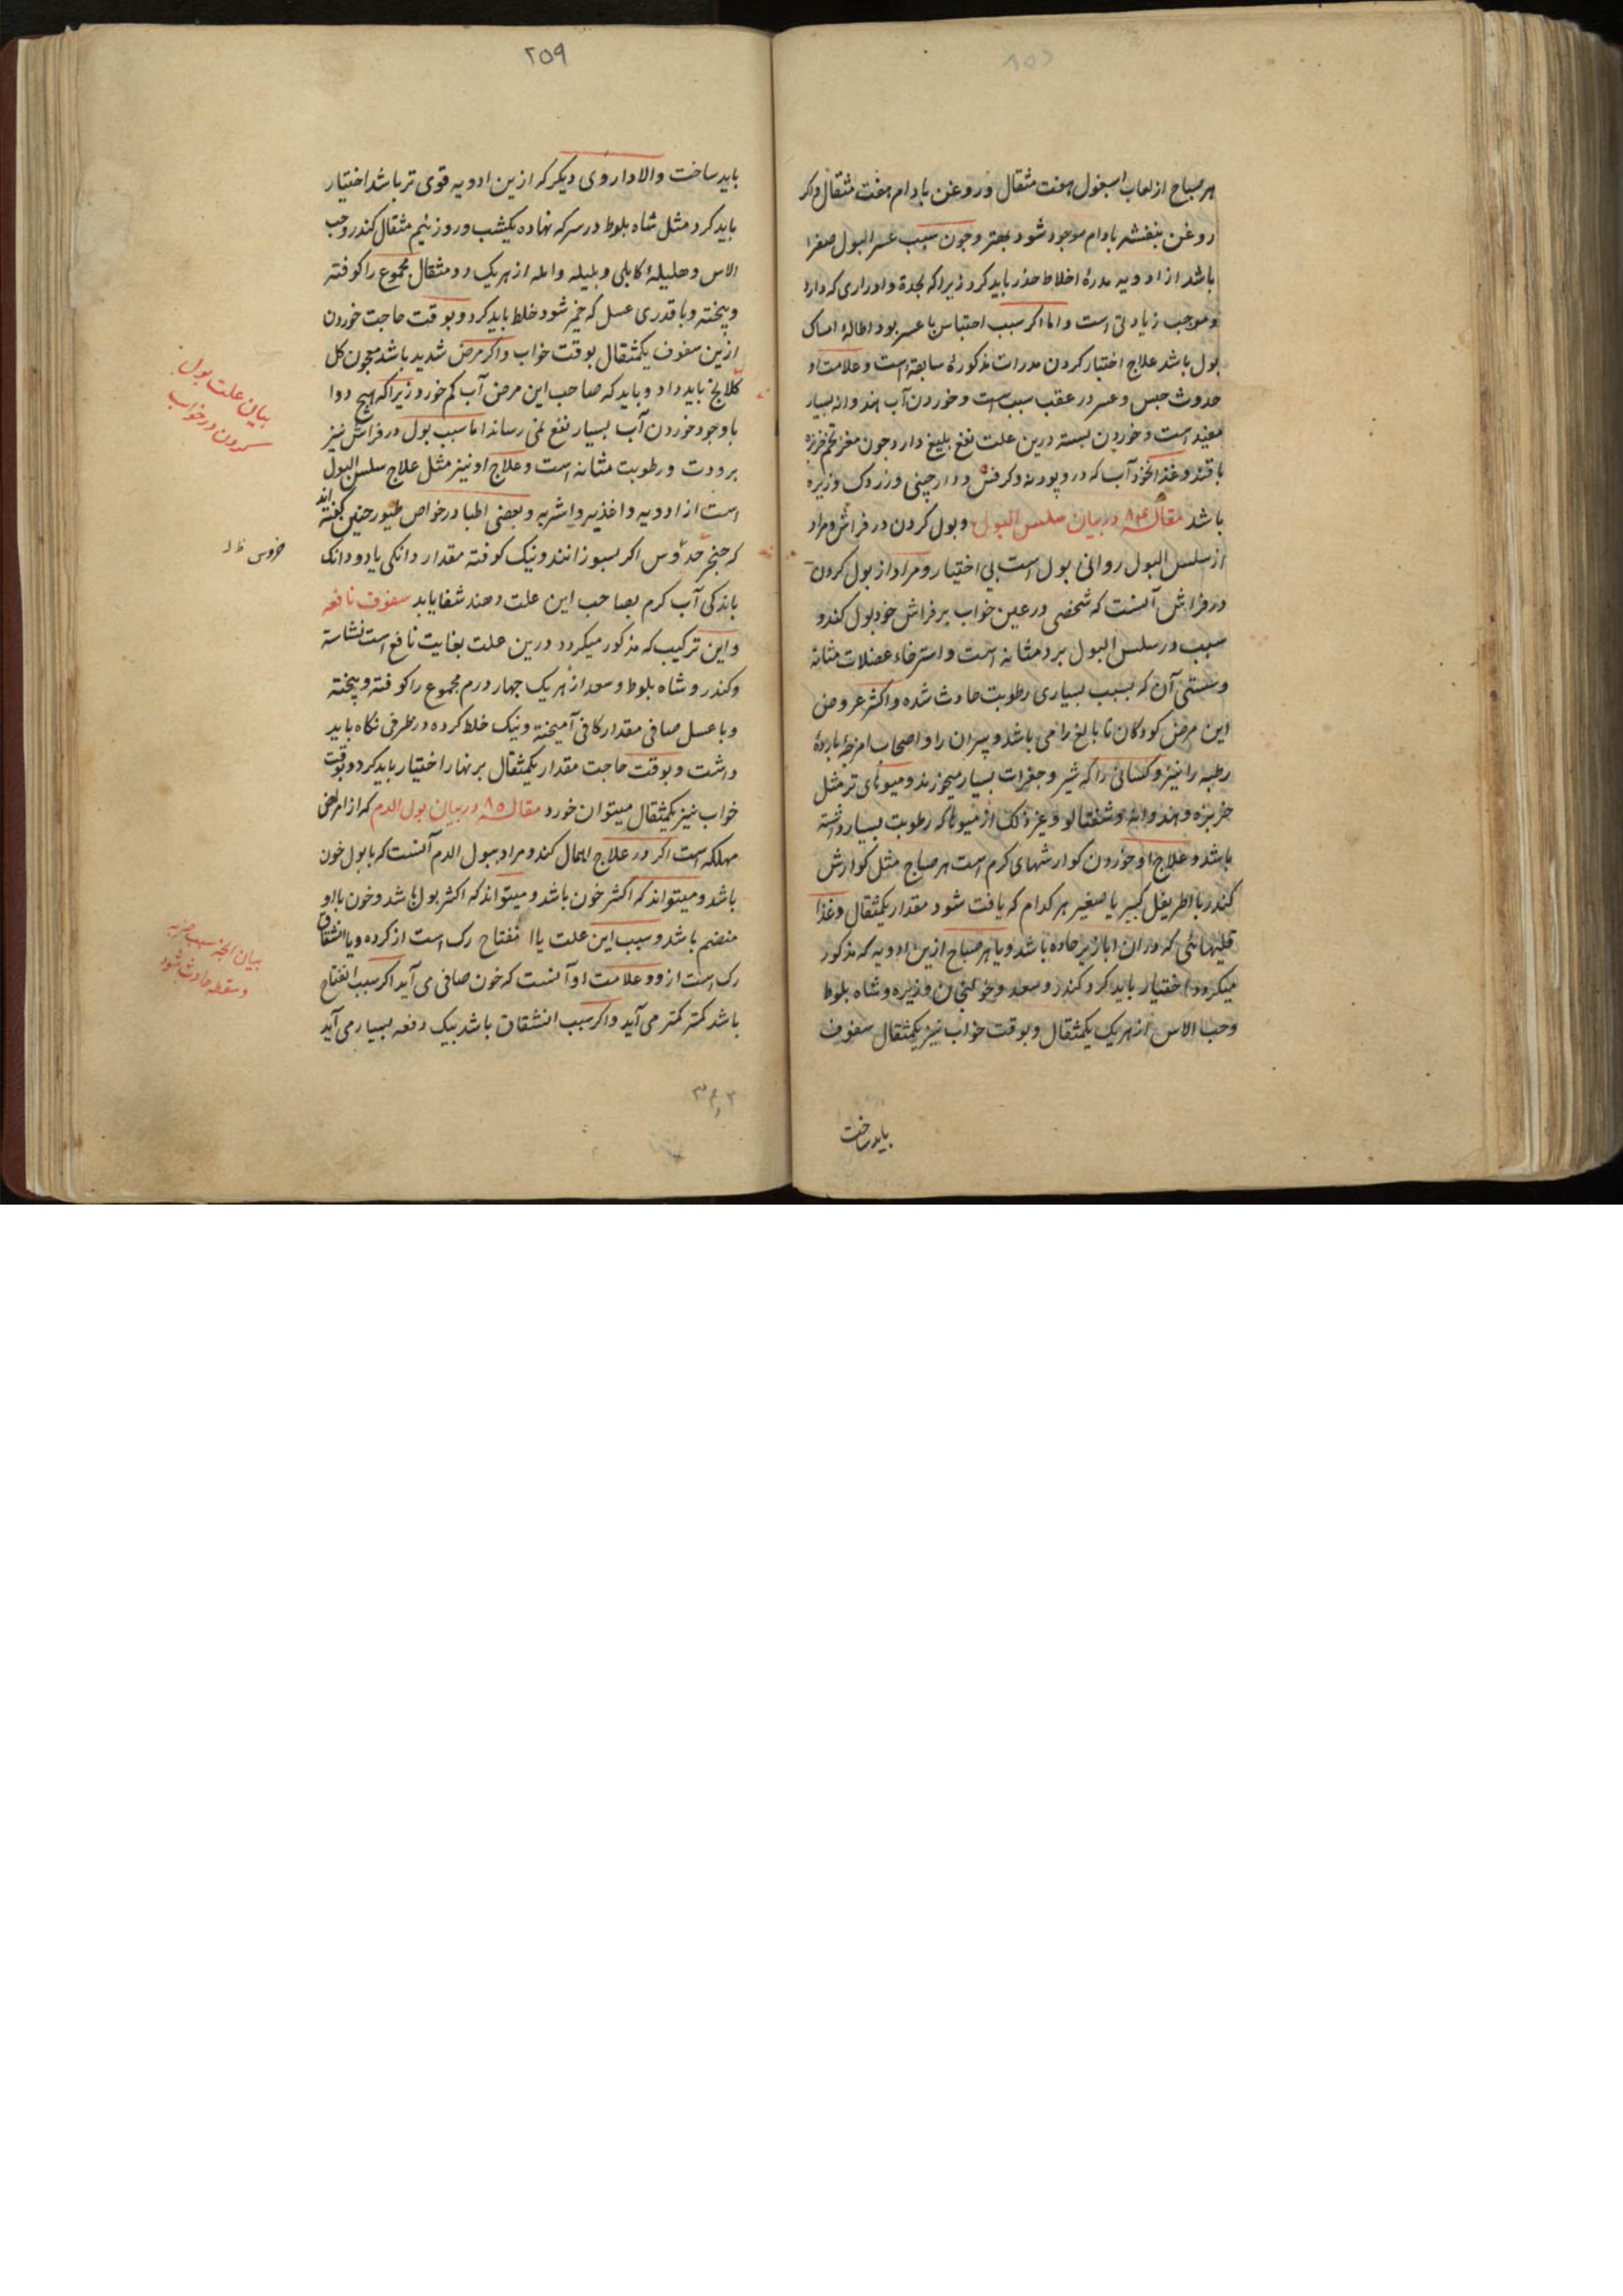 هر صباح از لعاب اسبغول هفت مثقال و روغن بادام هفت مثقال و اکر
روغن بنفشه بادام موجود شود بهتر و جون سبب عسر البول صفرا
باشد از ادویه مدرهٔ اخلاط حذر باید کرد زیراکه بحدة و ادراری که دارد
و موجب زیادتی است و اما اکر سبب احتباس یا عسر بود اطالهٔ امساک
بول باشد علاج اختیار کردن مدرات مذکورهٔ سابقه است و علامت او
حدوث حبس و عسر در عقب سبب است و خوردن آب هندوانه بسیار
مفید است و خوردن بسته درین علت نفع بلیغ دارد و جون مغز تخم خربزه
با قند و غذا نخود آب که در و پودنه و کرفس و دارچینی و زردک و زیره
باشد مقاله ۸۴ در بیان سلس البول و بول کردن در فراش و مراد
از سلسل البول روانی بول است بی اختیار و مراد از بول کردن
در فراش آنست که شخصی در عین خواب بر فراش خود بول کند و
سبب در سلس البول برد مثانه است و استرخاء عضلات مثانه
و سستی آن که بسبب بسیاری رطوبت حادث شده و اکثر عروض
این مرض کودکان نا بالغ را می باشد و پیران را و اصحاب امزجهٔ باردهٔ
رطبه را نیز و کسانی را که شیر و جغرات بسیار میخورند و میوهای تر مثل
خربزه و هندوانه و شفتالو و غیر ذلک از میوها که رطوبت بسیار داشته
باشد و علاج او خوردن کوارشهای کرم است هر صباح مثل کوارش
کندر یا اطریفل کبیر یا صغیر هر کدام که یافت شود مقدار یکمثقال و غذا
قلیهائی که در ان ابازیر حاده باشد و یا هر صباح ازین ادویه که مذکور
میکردد اختیار باید کرد کندر و سعد و خولنجان و زیره و شاه بلوط
و حب الاس از هر یک یکمثقال و بوقت خواب نیز یکمثقال سفوف
باید ساخت
۲۵۹
باید ساخت و الا داروی دیکر که ازین ادویه قوی تر باشد اختیار
باید کرد مثل شاه بلوط در سرکه نهاده یکشب و روز نیم مثقال کندر و حب
الاس و هلیلهٔ کابلی و بلیله و امله از هر یک دو مثقال مجموع را کوفته
و پخته و با قدری عسل که خمیر شود خلط باید کرد و بوقت حاجت خوردن
ازین سفوف یکمثقال بوقت خواب و اکر مرض شدید باشد معجون کل
کلانج باید داد و باید که صاحب این مرض آب کم خورد زیراکه هیچ دوا
با وجود خوردن آب بسیار نفع نمی رساند اما سبب بول در فراش نیز
برودت و رطوبت مثانه است و علاج او نیز مثل علاج سلس البول
است از ادویه و اغذیه و اشربه و بعضی اطبا در خواص طیور چنین گفته اند
که حنجر خروس اکر بسوزانند و نیک کوفته مقدار دانکی یا دو دانک
باندکی آب کرم بصاحب این علت دهند شفا یابد سفوف نافعه
و این ترکیب که مذکور میکردد درین علت بغایت نافع است نشاسته
و کندر و شاه بلوط و سعد از هر یک جهار درم مجموع را کوفته و پخته
و با عسل صافی مقدار کافی آمیخته و نیک خلط کرده در ظرفی نکاه باید
داشت و بوقت حاجت مقدار یکمثقال بر نهار اختیار باید کرد و بوقت
خواب نیز یکمثقال میتوان خورد مقاله ۸۵ در بیان بول الدم که از امراض
مهلکه است اکر در علاج اهمال کند و مراد ببول الدم آنست که با بول خون
باشد و میتواند که اکثر خون باشد و میتواند که اکثر بول باشد و خون با او
منضم باشد و سبب این علت یا انفتاح رک است از کرده و یا انشقاق
رک است از و و علامت او آنست که خون صافی می آید اکر سبب انفتاح
باشد کمتر کمتر می آید و اکر سبب انشقاق باشد بیک دفعه بسیار می آید
بیان علت بول
کردن در خواب
خروس
بیان انچه سبب ضربه
و سقطه حادث شود